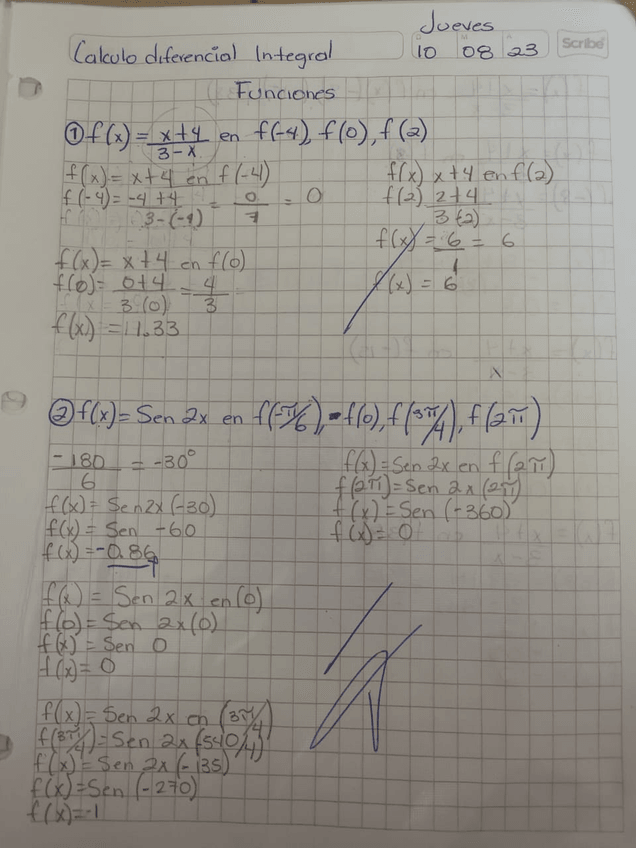 Jueves
Calculo diferencial Integral 10 08 23 Scribe
Funciones
① f(x) = x+4 / 3-x en f(-4), f(0), f(2)
f(x) = x+4 en f(-4)
f(-4) = -4+4 / 3-(-4) = 0/7 = 0
f(x) = x+4 en f(0)
f(0) = 0+4 / 3-(0) = 4/3
f(x) = 1.33
f(x) x+4 en f(2)
f(2) 2+4 / 3-(2)
f(x) = 6/1 = 6
f(x) = 6
② f(x) = Sen 2x en f(-π/6), f(0), f(3π/4), f(2π)
-180/6 = -30°
f(x) = Sen 2x (-30)
f(x) = Sen -60
f(x) = -0.86
f(x) = Sen 2x en (0)
f(0) = Sen 2x (0)
f(x) = Sen 0
f(x) = 0
f(x) = Sen 2x en (3π/4)
f(3π/4) = Sen 2x (-540/4)
f(x) = Sen 2x (-135)
f(x) = Sen (-270)
f(x) = -1
f(x) = Sen 2x en f(2π)
f(2π) = Sen 2x (2π)
f(x) = Sen (-360)
f(x) = 0